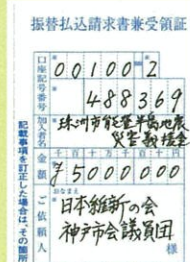 振替払込請求書兼受領証
口座記号番号
00100-2
488369
加入者名
珠洲市能登半島地震
災害義援金
金額
千 百 十 万 千 百 十 円
¥5000000
ご依頼人
おなまえ
日本維新の会
神戸市会議員団
様
記載事項を訂正した場合は、その箇所